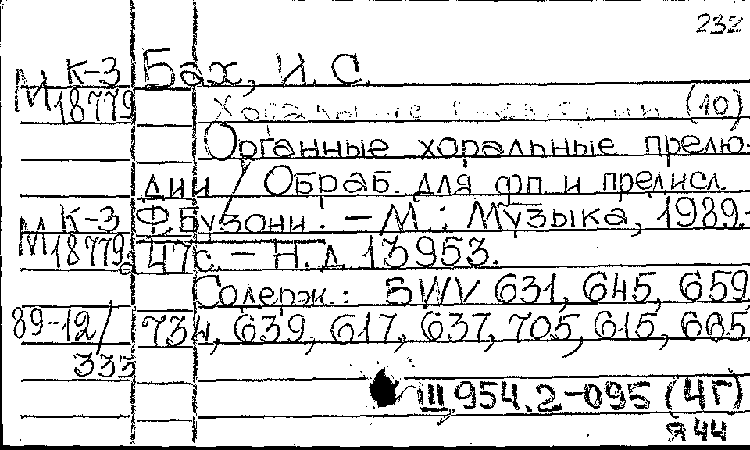 232
К-3 Бах, И. С.
М 18779 (10)
Органные хоральные прелю-
дии / Обраб. для фп. и предисл.
К-3 Ф. Бузони. – М.: Музыка, 1989.
М 18779а 47с. – Н. д. 13953.
Содерж.: BWV 631, 645, 659
89-12/ 734, 639, 617, 637, 705, 615, 665
333
III 954.2-095 (4Г)
Я 44